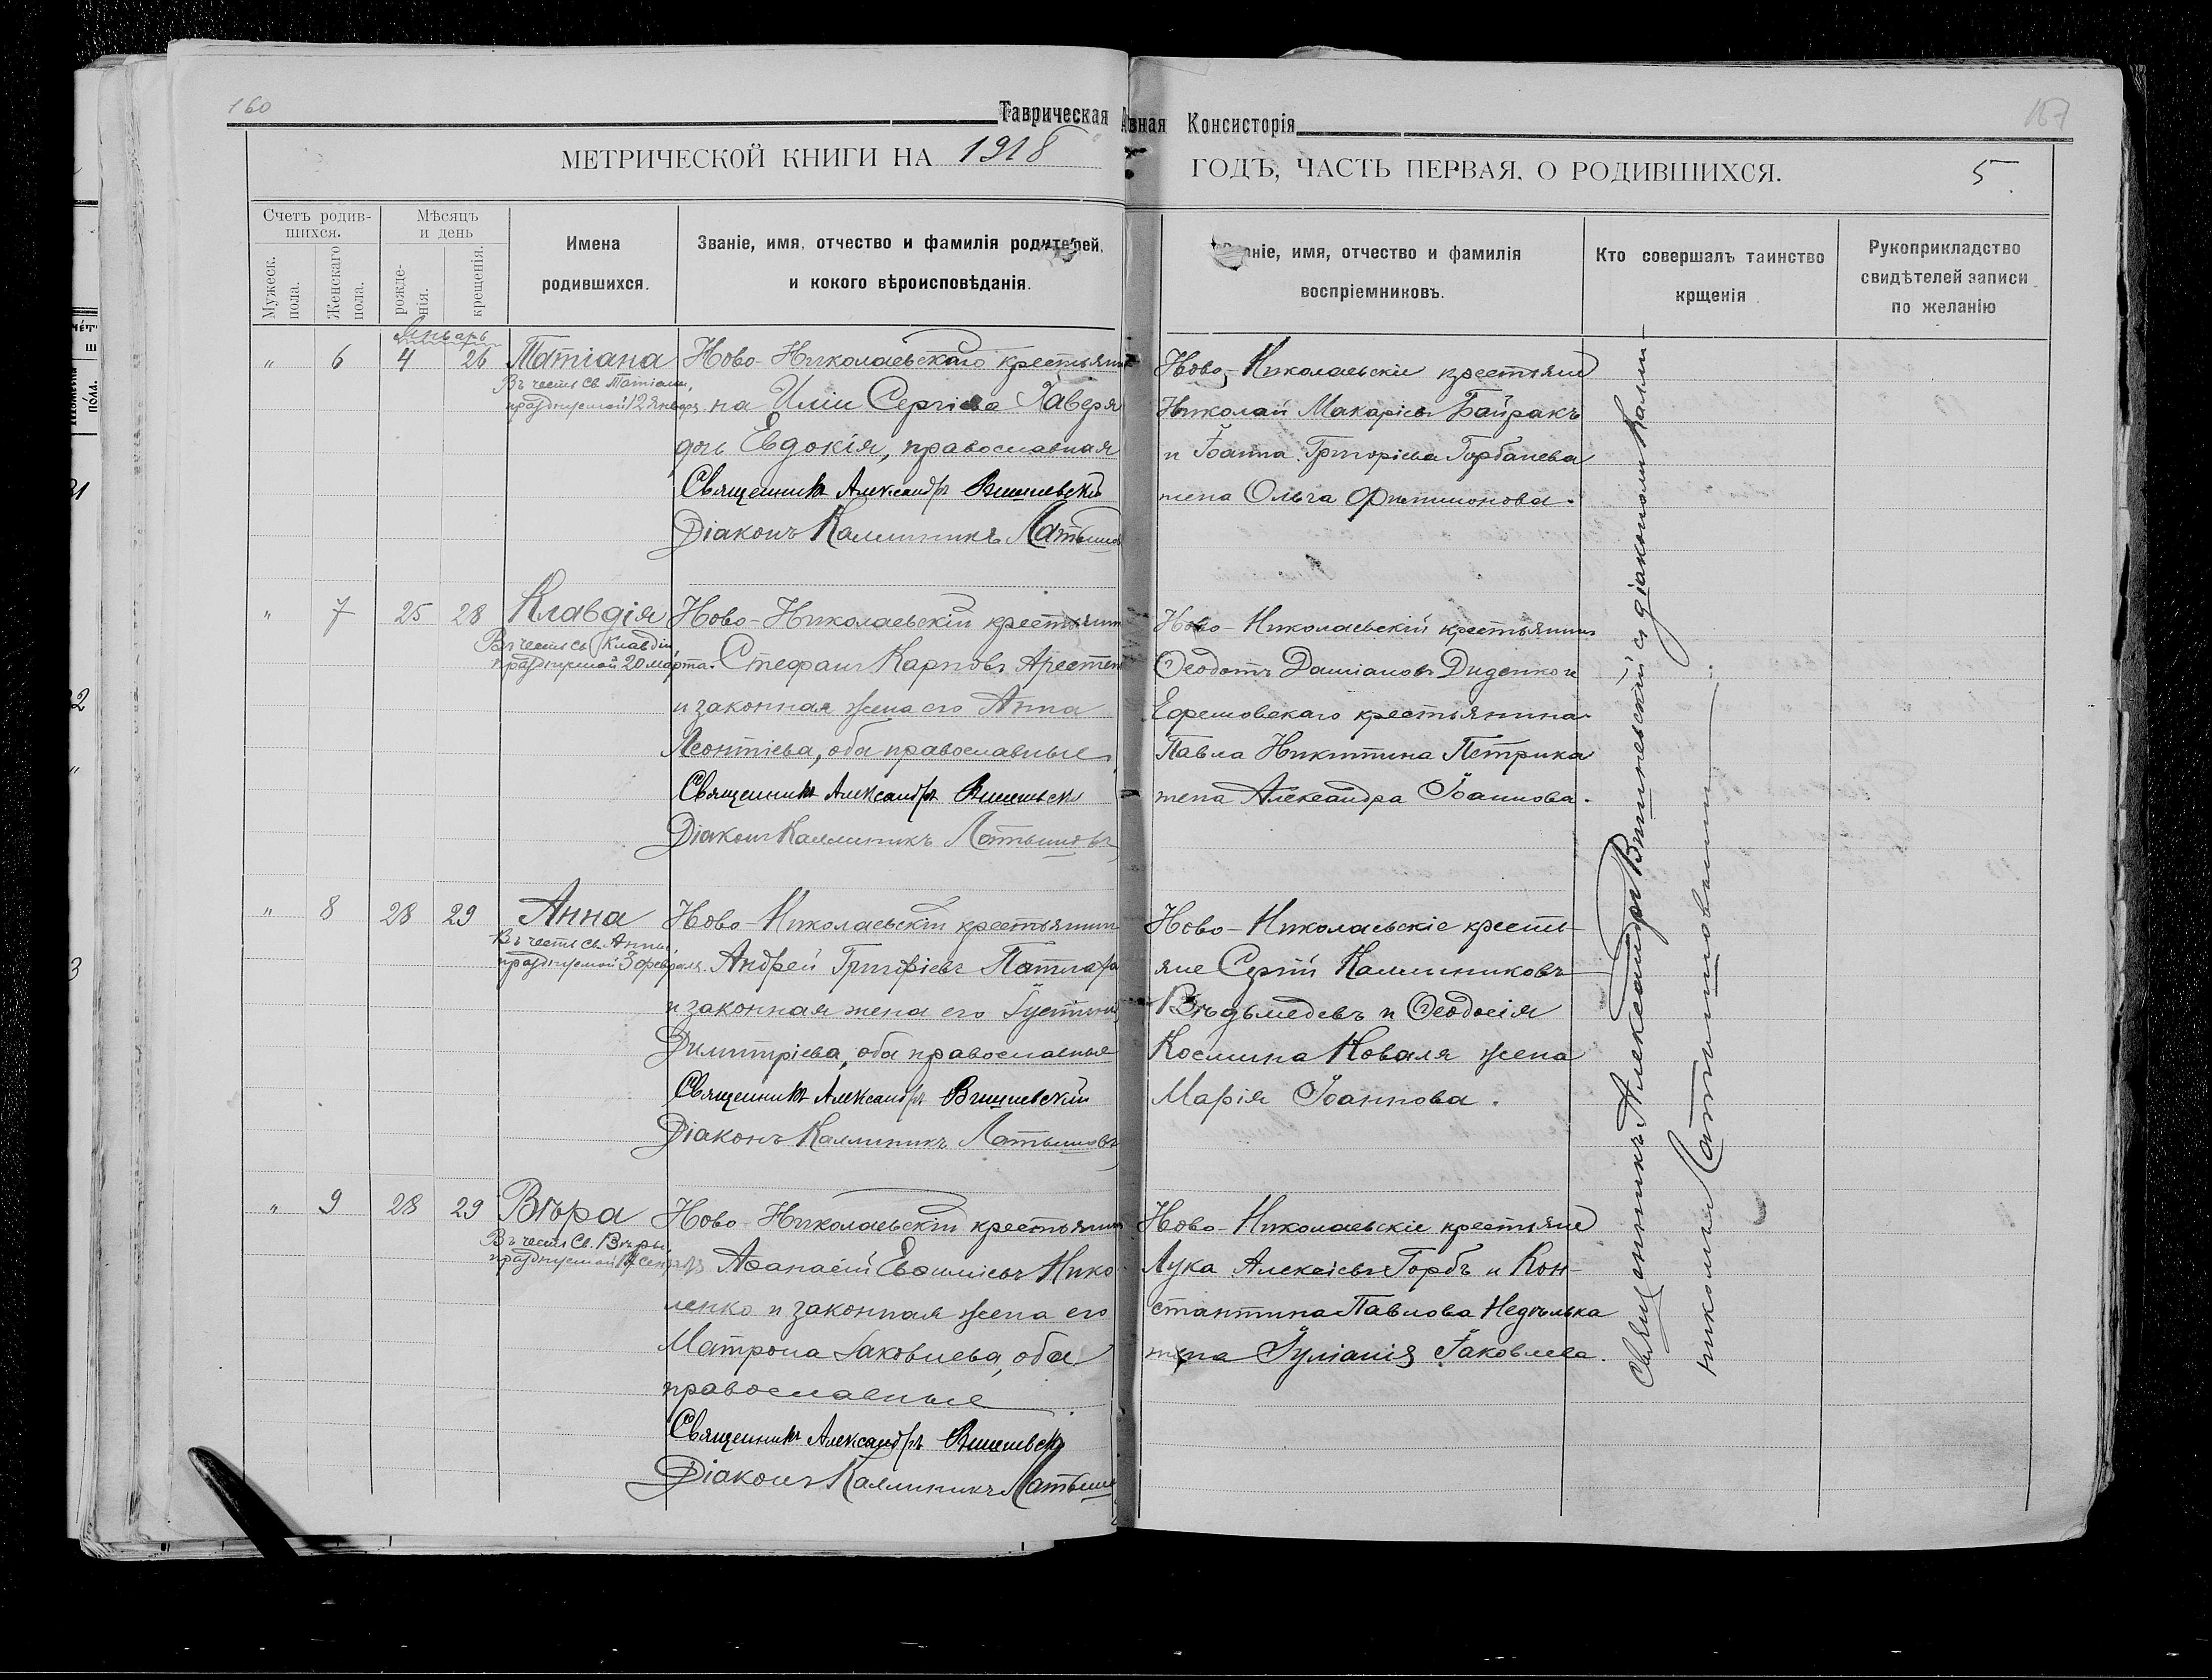 160
Таврическая
вная Консисторія
167
МЕТРИЧЕСКОЙ КНИГИ НА 1918
ГОДЪ, ЧАСТЬ ПЕРВАЯ, О РОДИВШИХСЯ.
5
Счетъ родив-
шихся.
Мужеск.
пола.
Женскаго
пола.
Мѣсяцъ
и день
рожде-
нія.
крещенія.
Имена
родившихся.
Званіе, имя, отчество и фамилія родителей,
и кокого вѣроисповѣданія.
ніе, имя, отчество и фамилія
воспріемниковъ.
Кто совершалъ таинство
крщенія
Рукоприкладство
свидѣтелей записи
по желанію
Январь
" 6 4 26 Татіана
Въ честь Св. Татіаны,
празднуемой 12 Января
Ново-Николаевскаго крестьяни-
на Иліи Сергіева Хаверя
дочь Евдокія, православная
Священникъ Александръ Вишневскій
Діаконъ Каллиникъ Латышов
Ново-Николаевскіе крестьяне
Николай Макаріевъ Байракъ
и Іоанна Григоріева Горбанева
жена Ольга Филимонова.
" 7 25 28 Клавдія
Въ честь Св. Клавдіи,
празднуемой 20 марта.
Ново-Николаевскій крестьянин
Стефанъ Карповъ Арестен
и законная жена его Анна
Леонтіева, оба православные
Священникъ Александръ Вишневскі
Діаконъ Каллиникъ Латышовъ
Ново-Николаевскій крестьянинъ
Ѳеодотъ Даміановъ Диденко и
Ефремовскаго крестьянина
Павла Никитина Петрика
жена Александра Іоаннова.
" 8 28 29 Анна
Въ честь Св. Анны,
празднуемой 3 февраля.
Ново-Николаевскій крестьянин
Андрей Григоріевъ
и законная жена его Іустина
Димитріева, оба православные
Священникъ Александръ Вишневскій
Діаконъ Каллиникъ Латышовъ
Ново-Николаевскіе кресть-
яне Сергій Каллиниковъ
Вѣдьмедевъ и Ѳеодосія
Космина Коваля жена
Марія Іоаннова.
" 9 28 29 Вѣра
Въ честь Св. Вѣры,
празднуемой 17 Сентяб
Ново-Николаевскій крестьянин
Аѳанасій Евѳиміевъ Нико-
ленко и законная жена его
Матрона Іаковлева, оба
православные
Священникъ Александръ Вишневск
Діаконъ Каллиникъ Латыш
Ново-Николаевскіе крестьяне
Лука Алексіевъ Горбъ и Кон-
стантина Павлова Недѣлька
жена Іуліанія Іаковлева.
Священникъ Александръ Вишневскій съ діакономъ Калли-
никомъ Латышовымъ